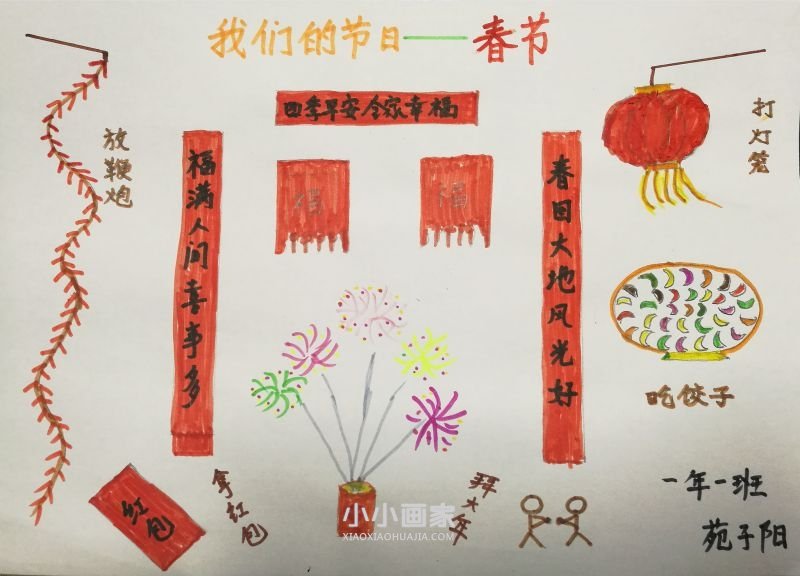 我们的节日——春节
四季平安全家幸福
福满人间喜事多
春回大地风光好
福
福
放鞭炮
打灯笼
吃饺子
红包
拿红包
拜大年
一年一班
苑子阳
小小画家
XIAOXIAOHUAJIA.COM